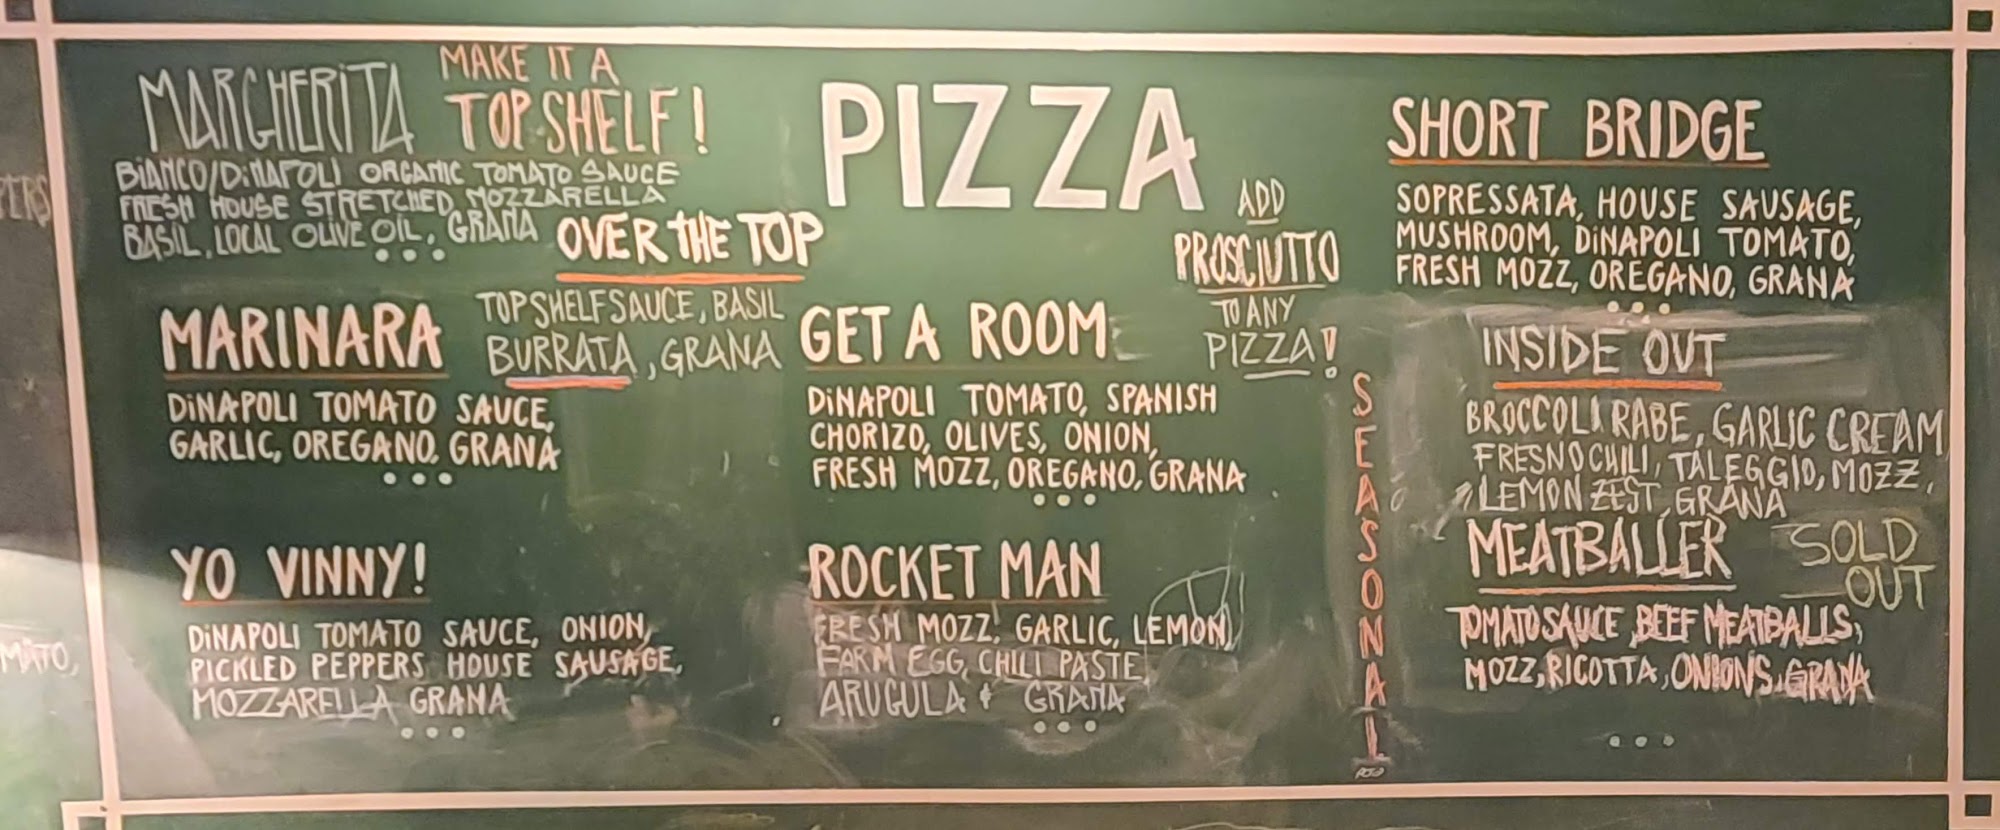 MARGHERITA
MAKE IT A
TOP SHELF!
BIANCO/DiNAPOLI ORGANIC TOMATO SAUCE
FRESH HOUSE STRETCHED MOZZARELLA
BASIL, LOCAL OLIVE OIL, GRANA
OVER THE TOP
TOP SHELF SAUCE, BASIL
BURRATA, GRANA
MARINARA
DiNAPOLI TOMATO SAUCE,
GARLIC, OREGANO, GRANA
YO VINNY!
DiNAPOLI TOMATO SAUCE, ONION,
PICKLED PEPPERS HOUSE SAUSAGE,
MOZZARELLA GRANA
PIZZA
ADD
PROSCIUTTO
TO ANY
PIZZA!
GET A ROOM
DiNAPOLI TOMATO, SPANISH
CHORIZO, OLIVES, ONION,
FRESH MOZZ, OREGANO, GRANA
ROCKET MAN
FRESH MOZZ, GARLIC, LEMON,
FARM EGG, CHILI PASTE
ARUGULA & GRANA
SEASONAL
SHORT BRIDGE
SOPRESSATA, HOUSE SAUSAGE,
MUSHROOM, DiNAPOLI TOMATO,
FRESH MOZZ, OREGANO, GRANA
INSIDE OUT
BROCCOLI RABE, GARLIC CREAM
FRESNO CHILI, TALEGGIO, MOZZ,
LEMON ZEST, GRANA
MEATBALLER
SOLD
OUT
TOMATO SAUCE, BEEF MEATBALLS,
MOZZ, RICOTTA, ONIONS, GRANA